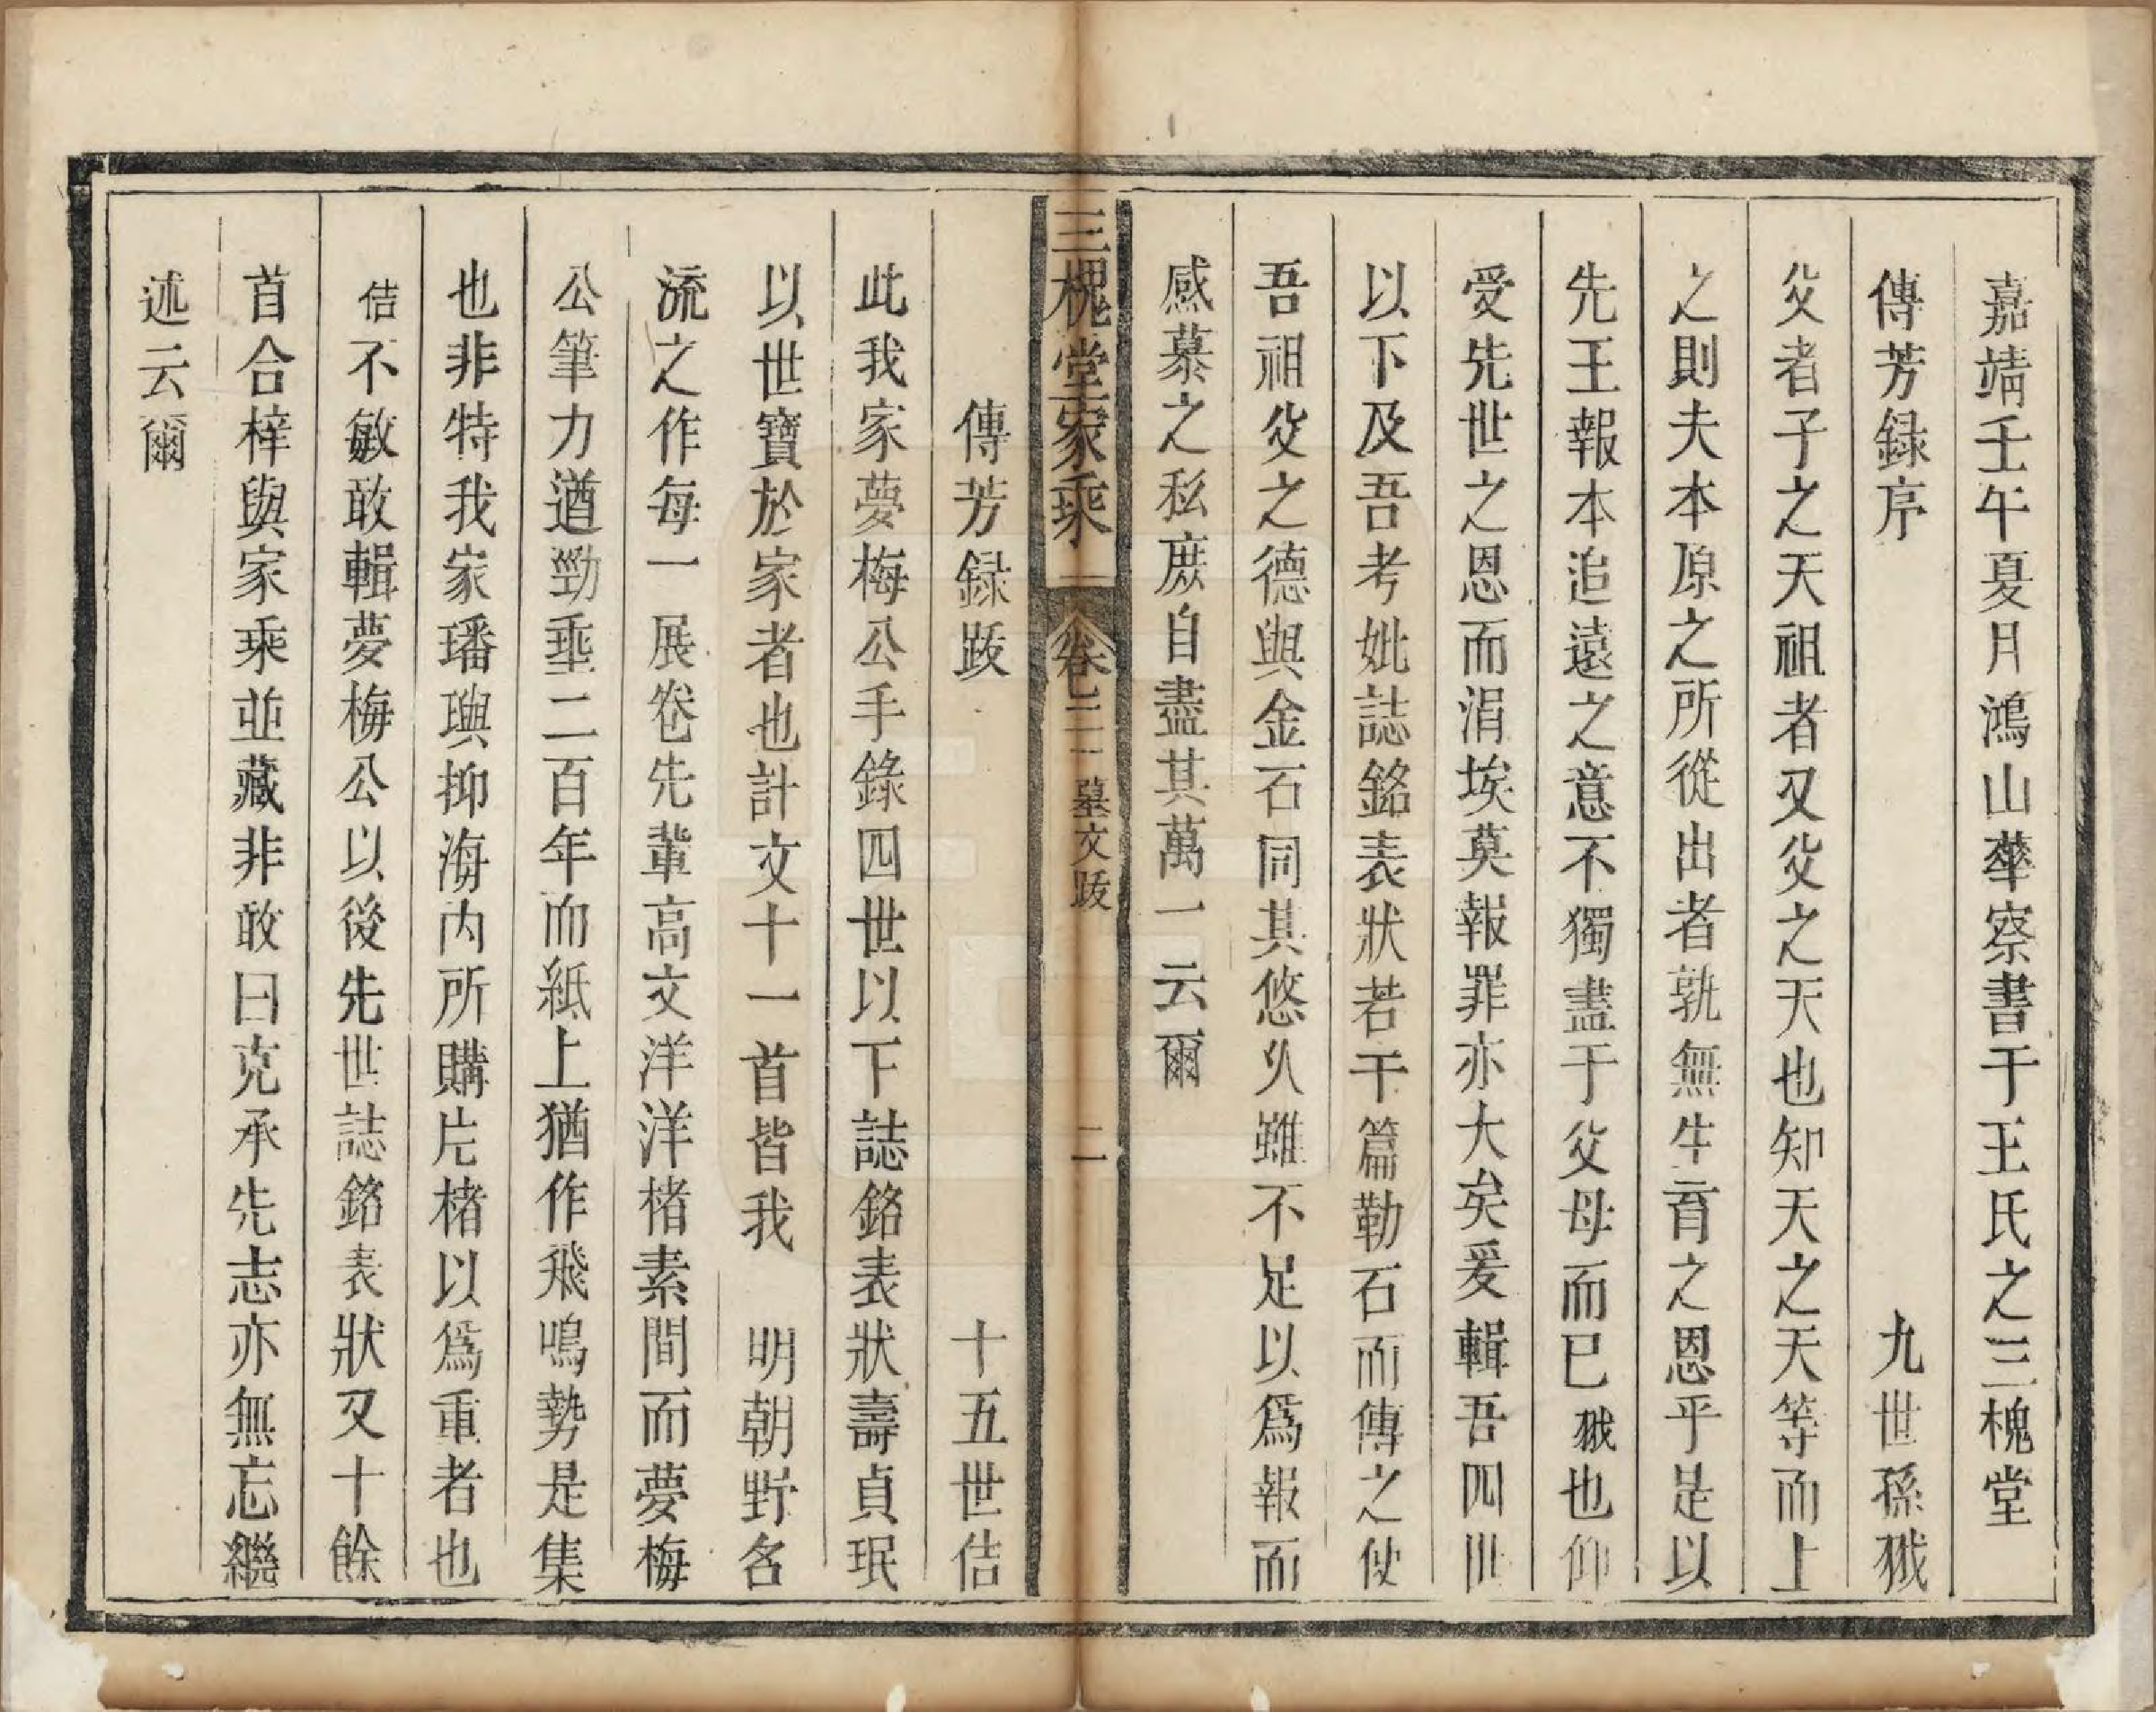 嘉靖壬午夏月鴻山華察書于王氏之三槐堂
傳芳録序　九世孫㦸
父者子之天祖者又父之天也知天之天等而上
之則夫本原之所從出者孰無生育之恩乎是以
先王報本追遠之意不獨盡于父母而已㦸也仰
受先世之恩而涓埃莫報罪亦大矣爰輯吾四世
以下及吾考妣誌銘表狀若干篇勒石而傳之使
吾祖父之德與金石同其悠久雖不足以爲報而
感慕之私庶自盡其萬一云爾
三槐堂家乘　卷三　墓文跋　二
傳芳録跋　十五世佶
此我家夢梅公手錄四世以下誌銘表狀壽貞珉
以世寶於家者也計文十一首皆我　明朝野名
流之作每一展卷先輩高文洋洋楮素間而夢梅
公筆力遒勁垂二百年而紙上猶作飛鳴勢是集
也非特我家璠璵抑海内所購片楮以爲重者也
佶不敏敢輯夢梅公以後先世誌銘表狀又十餘
首合梓與家乘並藏非敢曰克承先志亦無忘繼
述云爾